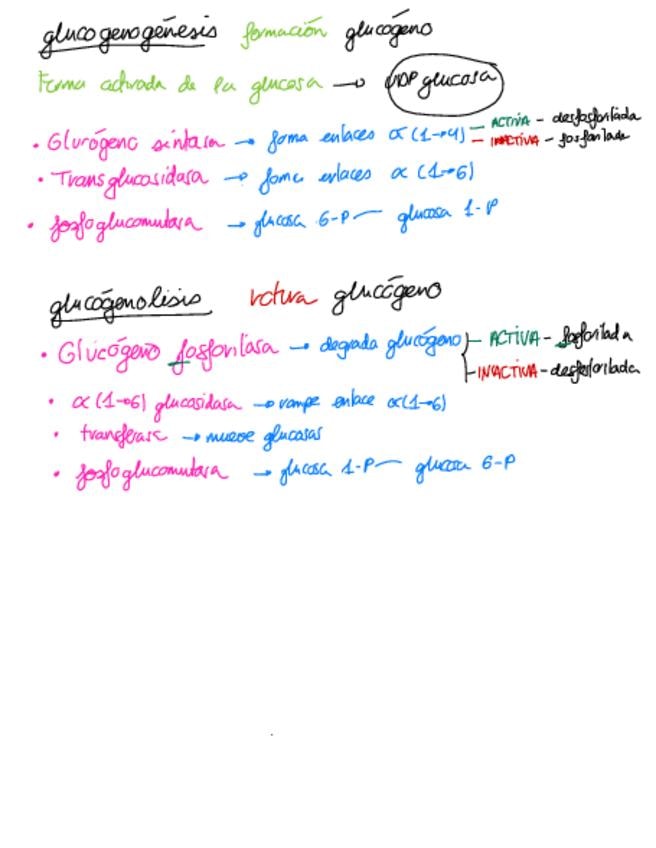 glucogenogénesis formación glucógeno
Forma activada de la glucosa → UDP glucosa
• Glucógeno sintasa → forma enlaces α (1→4) - ACTIVA - desfosforilada
- INACTIVA - fosforilada
• Transglucosidasa → forma enlaces α (1→6)
• fosfoglucomutasa → glucosa 6-P — glucosa 1-P
glucógenolisis rotura glucógeno
• Glucógeno fosforilasa → degrada glucógeno - ACTIVA - fosforilada
- INACTIVA - desfosforilada
• α (1→6) glucosidasa → rompe enlace α(1→6)
• transferasa → mueve glucosas
• fosfoglucomutasa → glucosa 1-P — glucosa 6-P